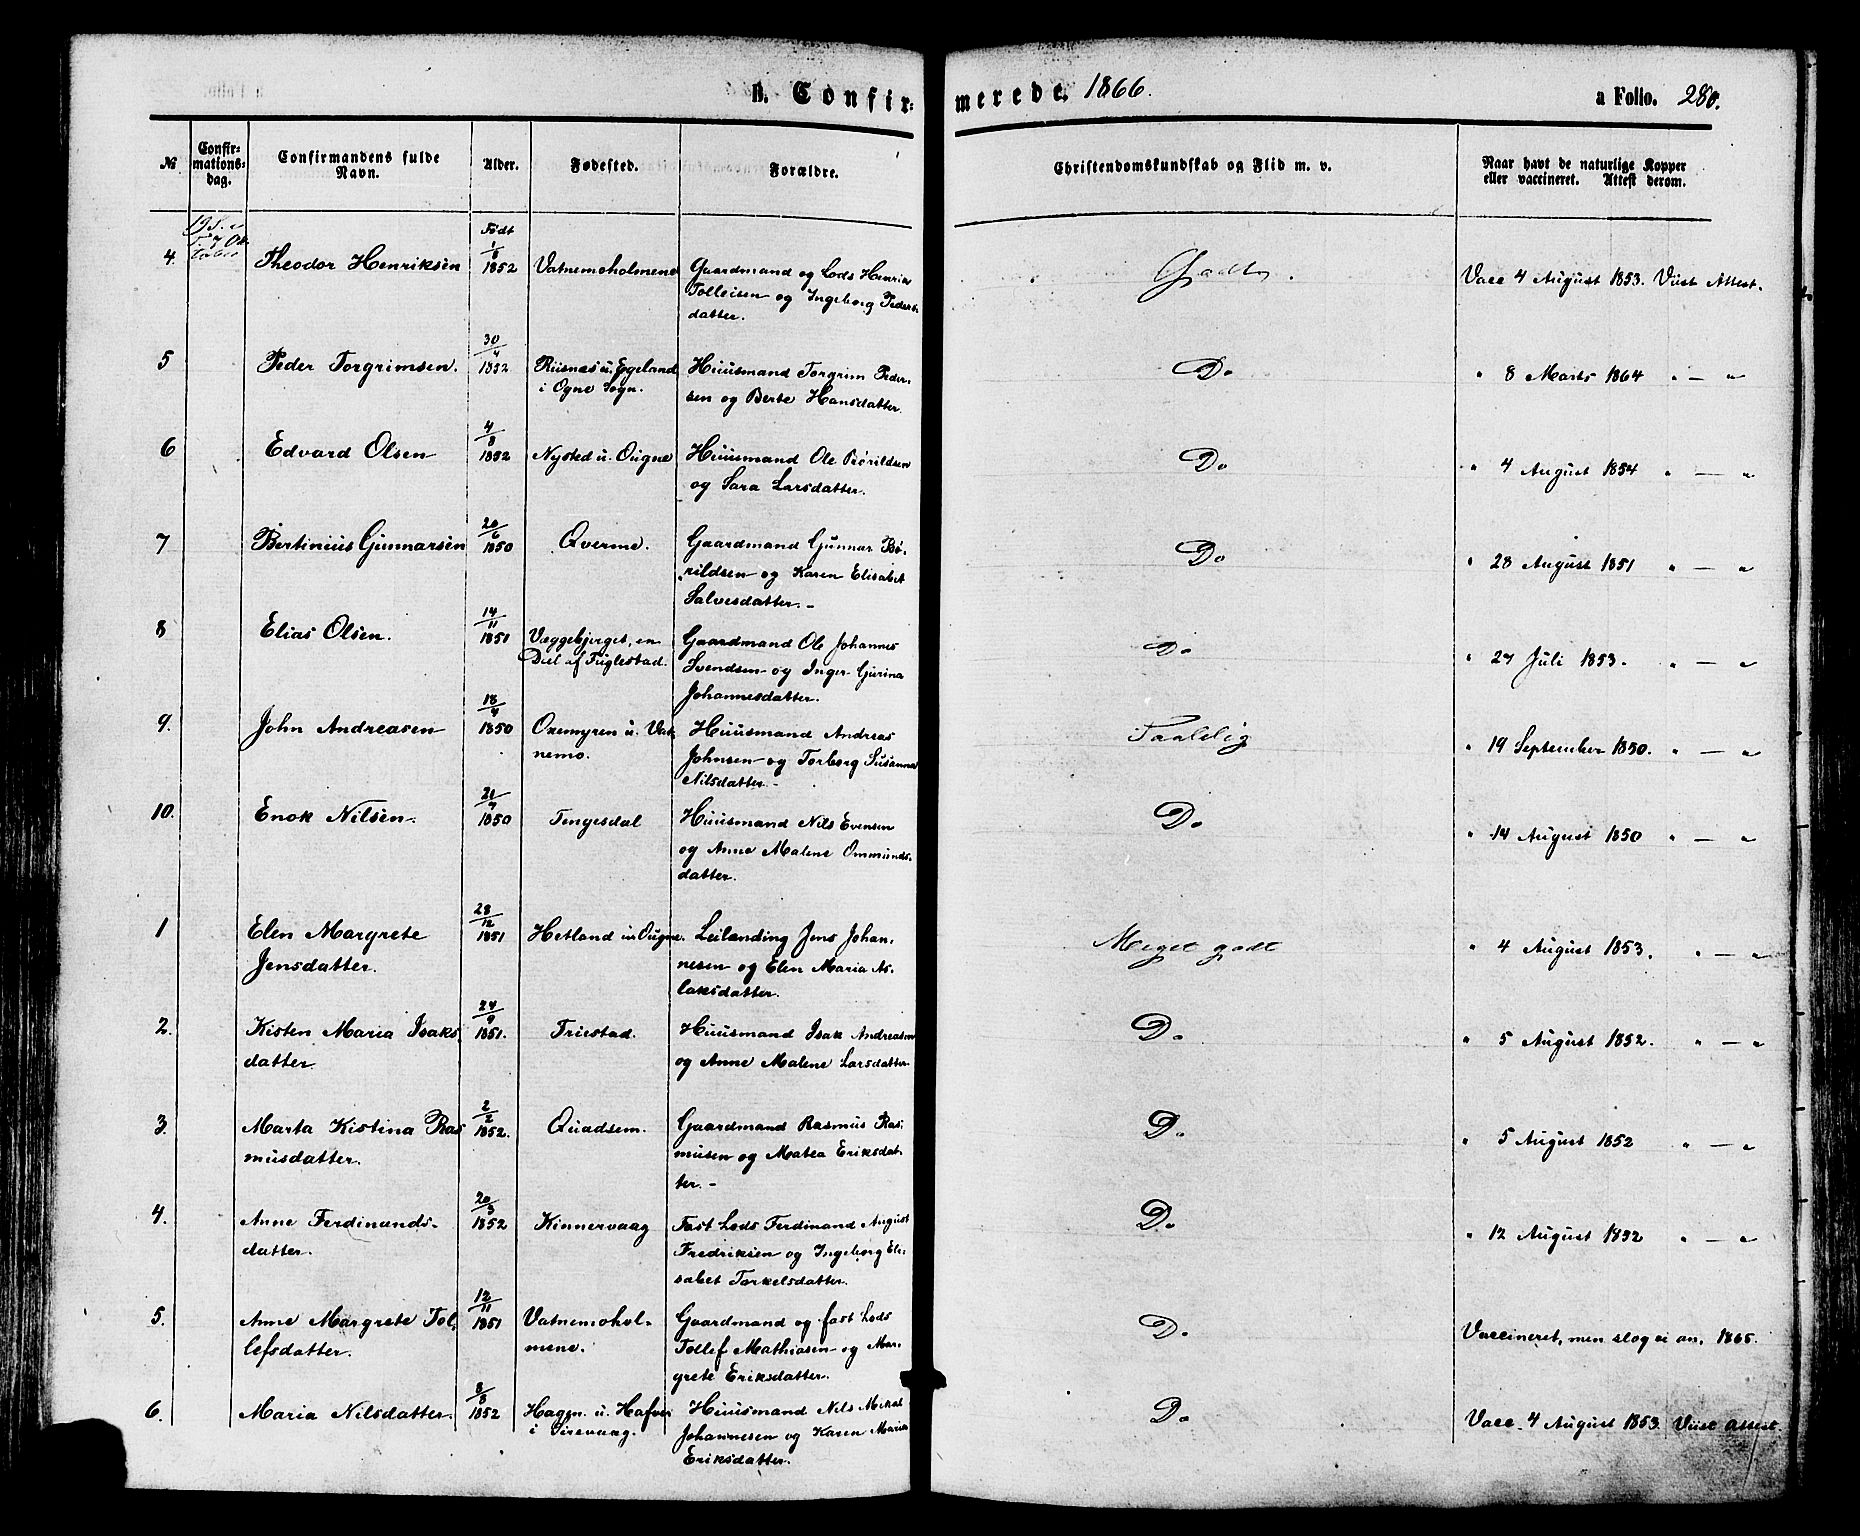 B. Confirmerede. 1866. a Folio. 280.
No
Confirmationsdag.
Confirmandens fulde Navn.
Alder.
Fødested.
Forældre.
Christendomskundskab og Flid m. v.
Naar havt de naturlige Kopper eller vaccineret. Attest derom.
4. Theodor Henriksen Født 1/8 1852 Vatnemoholmene Gaardmand og Lods Henrik
Tolleisen og Ingeborg Peders-
datter. Godt. Vacc 4 August 1853. Viist Attest.
5 Peder Torgrimsen. 30/4 1852 Riisnæs u. Egeland
i Ogne Sogn. Huusmand Torgrim Peder-
sen og Berte Hansdatter. Do " 8 Marts 1864 " — "
6 Edvard Olsen 4/8 1852 Nysted u. Ougne Huusmand Ole Børildsen
og Sara Larsdatter. Do " 4 August 1854 " — "
7 Bertinius Gunnarsen 20/6 1850 Qverme. Gaardmand Gunnar Bø-
rildsen og Karen Elisabet
Salvesdatter. - Do " 28 August 1851 " — "
8 Elias Olsen. 14/11 1851 Væggebjerget, en
Deel af Fuglestad. Gaardmand Ole Johannes
Svendsen og Inger Gurina
Johannesdatter. Do " 27 Juli 1853. " — "
9. John Andreasen 18/4 1850 Oxemyren u. Vat-
nemo. Huusmand Andreas
Johnsen og Torborg Susanna
Nilsdatter. - Taalelig " 19 September 1850. " — "
10. Enok Nilsen. 21/4 1850 Tengesdal Huusmand Nils Evensen
og Anne Malene Ommunds-
datter. Do " 14 August 1850 " — "
1 Elen Margrete
Jensdatter. 28/12 1851 Hetland u. Ougne. Leilænding Jens Johan-
nesen og Elen Maria As-
laksdatter. Meget godt " 4 August 1853. " — "
2. Kisten Maria Isaks
datter. 24/9 1851. Friestad. Huusmand Isak Andreasen
og Anne Malene Larsdatter. Do " 5 August 1852. " — "
3. Marta Kistina Ras
musdatter. 2/2 1852. Quadsem. Gaardmand Rasmus Ras-
musen og Matea Eriksdat-
ter. - Do " 5 August 1852 " — "
4. Anne Ferdinands-
datter. 20/3 1852 Kinnervaag Fast Lods Ferdinand August
Fredriksen og Ingeborg Eli-
sabet Torkelsdatter. Do " 12 August 1852 " — "
5. Anne Margrete Tol-
lefsdatter. 12/11 1851 Vatnemohol-
mene. Gaardmand og fast Lods
Tollef Mathiasen og Mar-
grete Eriksdatter. Do Vaccineret, men slog ei an. 1865.
6. Maria Nilsdatter. 8/3 1852 Hagen u. Hafver
i Sirevaag. Huusmand Nils Mikal
Johannesen og Karen Maria
Eriksdatter. Do Vacc. 4 August 1853. Viist attest.